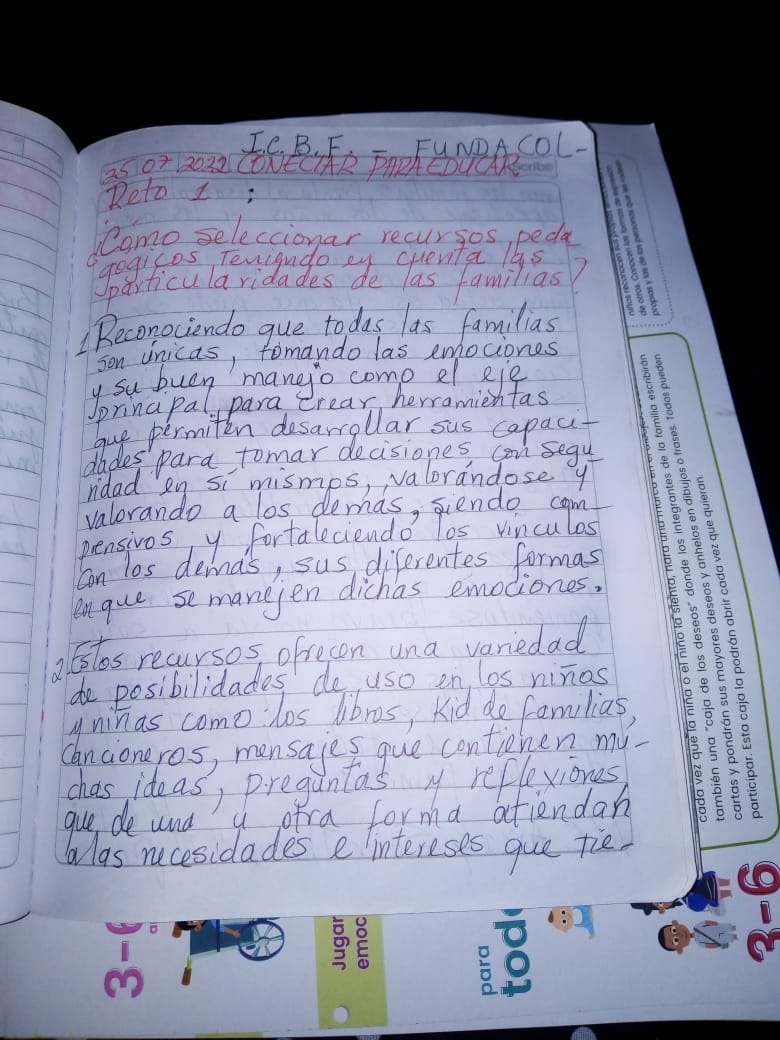 I.C.B.F. - FUNDACOL-
25 07 2022 CONECTAR PARA EDUCAR
scribe
Reto 1 :
¿Cómo seleccionar recursos peda
gogicos Teniendo en cuenta las
particularidades de las familias?
1 Reconociendo que todas las familias
son únicas, tomando las emociones
y su buen manejo como el eje
principal para crear herramientas
que permiten desarrollar sus capaci-
dades para tomar decisiones con segu
ridad en sí mismos, valorándose y
valorando a los demás, siendo com-
prensivos y fortaleciendo los vinculos
con los demás, sus diferentes formas
en que se manejen dichas emociones.
2 Estos recursos ofrecen una variedad
de posibilidades de uso en los niños
y niñas como: los libros, Kid de familias,
Cancioneros, mensajes que contienen mu-
chas ideas, preguntas y reflexiones
que de una u otra forma atiendan
a las necesidades e intereses que tie-
de otros. Conocen las formas de
propias y las de las personas que
cada vez que la niña o el niño la sienta, hará una marca en
también una "caja de los deseos" donde los integrantes de la familia escribirán
cartas y pondrán sus mayores deseos y anhelos en dibujos o frases. Todos pueden
participar. Esta caja la podrán abrir cada vez que quieran.
3-6
Jugar
emoc
para
tod
3-6